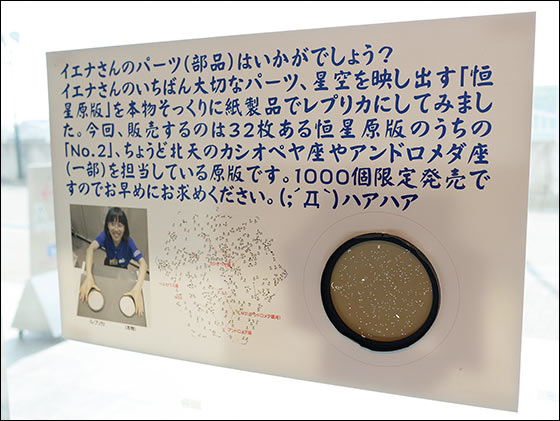 イエナさんのパーツ(部品)はいかがでしょう?
イエナさんのいちばん大切なパーツ、星空を映し出す「恒
星原版」を本物そっくりに紙製品でレプリカにしてみまし
た。今回、販売するのは32枚ある恒星原版のうちの
「No.2」、ちょうど北天のカシオペヤ座やアンドロメダ座
(一部)を担当している原版です。1000個限定発売で
すのでお早めにお求めください。(;´Д`)ハアハア